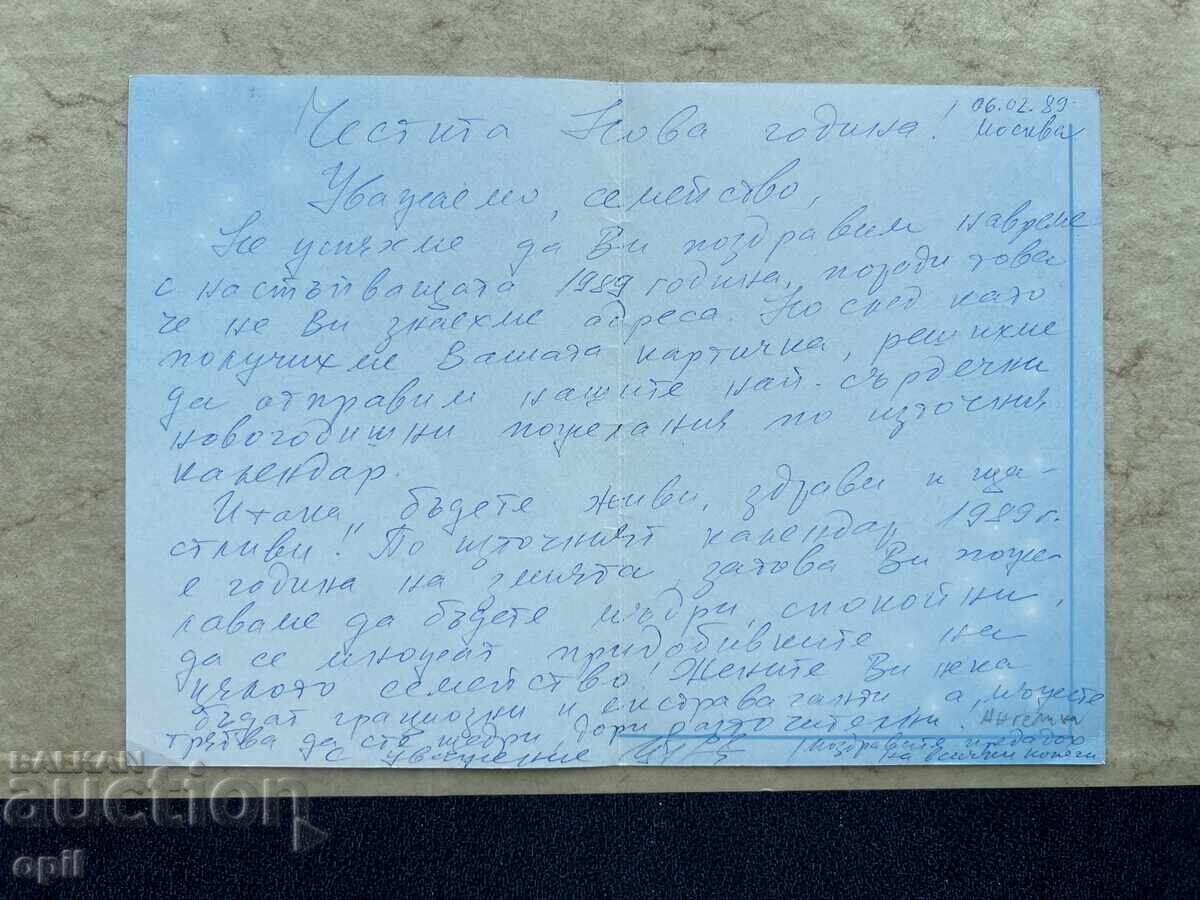 06.02.89
Честита Нова година!
Москва
Уважаемо, семейство,
Не успяхме да Ви поздравим навреме
с настъпващата 1989 година, поради това
че не Ви знаехме адреса. Но след като
получихме Вашата картичка, решихме
да отправим нашите най-сърдечни
новогодишни пожелания по източния
календар.
И така, бъдете живи, здрави и ща-
стливи! По източният календар, 1989 г.
е година на змията, затова Ви поже-
лаваме да бъдете мъдри, спокойни,
да се множат придобивките на
цялото семейство! Жените Ви нека
бъдат грациозни и екстравагантни, а мъжете
трябва да сте щедри дори разточителни.
Ангелина
С уважение
Поздравите предайте
на всички колеги
BALKAN
auction
opil